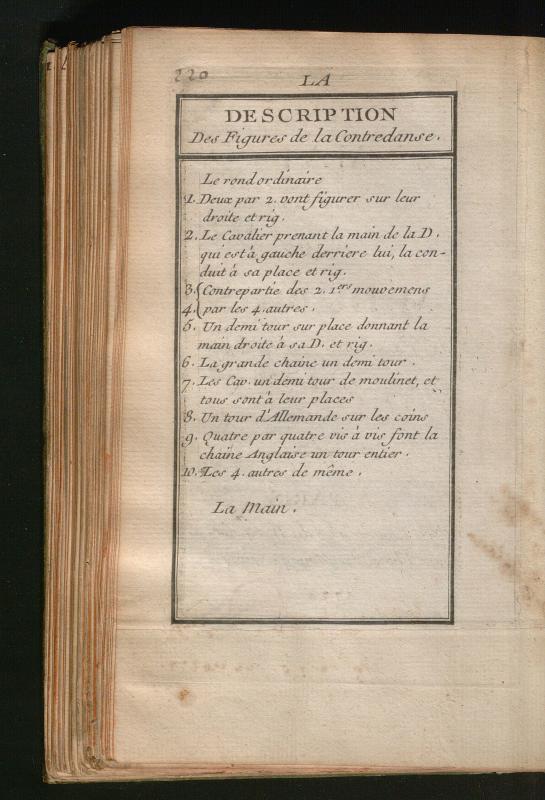 220
LA
DESCRIPTION
Des Figures de la Contredanse.
Le rond ordinaire
1. Deux par 2. vont figurer sur leur
droite et rig.
2. Le Cavalier prenant la main de la D.
qui est à gauche derriere lui, la con-
duit à sa place et rig.
3. Contrepartie des 2. 1ers mouvemens
4. par les 4. autres.
5. Un demi tour sur place donnant la
main droite à sa D. et rig.
6. La grande chaine un demi tour.
7. Les Cav. un demi tour de moulinet, et
tous sont à leur places
8. Un tour d'Allemande sur les coins
9. Quatre par quatre vis à vis font la
chaine Anglaise un tour entier.
10. Les 4. autres de même.
La Main.